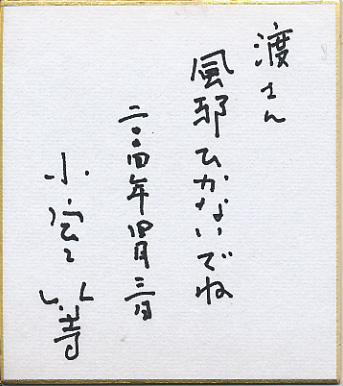 渡さん
風邪ひかないでね
二〇〇四年四月三日
小宮山